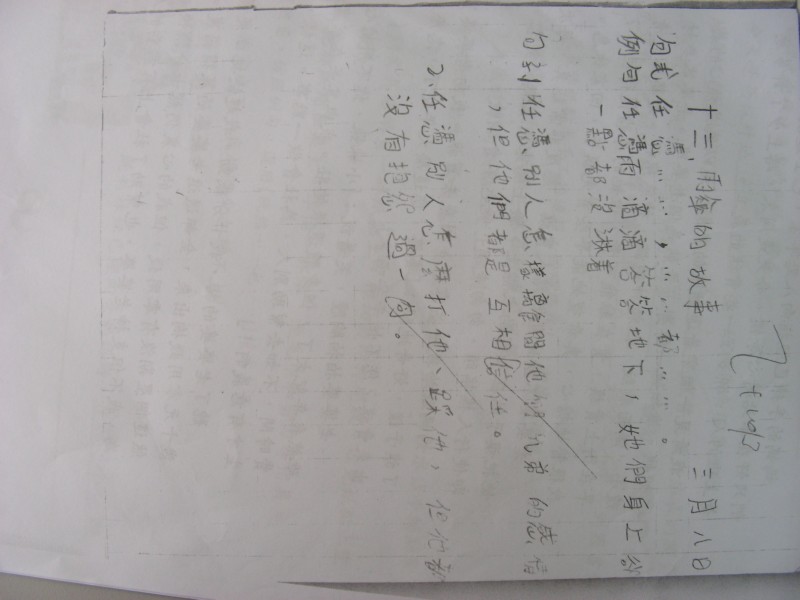 十三、雨傘的故事 三月八日
句式 任憑……，……都……。
例句 任憑雨滴滴答答地下，她們身上卻
一點都沒淋着
句子 任憑別人怎樣離間他們兄弟的感情
，但他們都是互相信任。
2、任憑別人怎麼打他、踢他，但他都
沒有抱怨過一句。